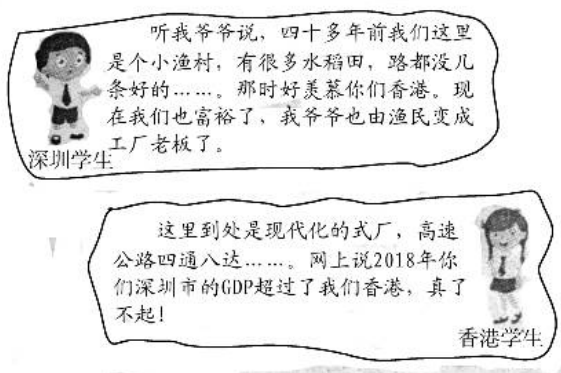 听我爷爷说，四十多年前我们这里
是个小渔村，有很多水稻田，路都没几
条好的……。那时好羡慕你们香港。现
在我们也富裕了，我爷爷也由渔民变成
工厂老板了。
深圳学生
这里到处是现代化的式厂，高速
公路四通八达……。网上说2018年你
们深圳市的GDP超过了我们香港，真了
不起！
香港学生